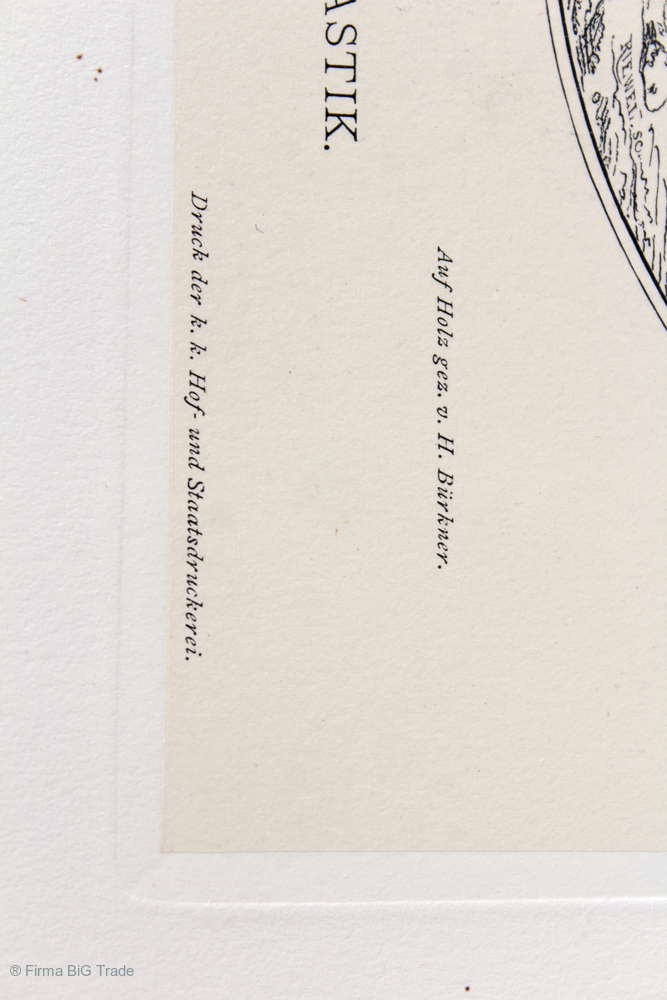 RIEWEL. SC.
Auf Holz gez. v. H. Bürkner.
ASTIK.
Druck der k. k. Hof- und Staatsdruckerei.
® Firma BiG Trade